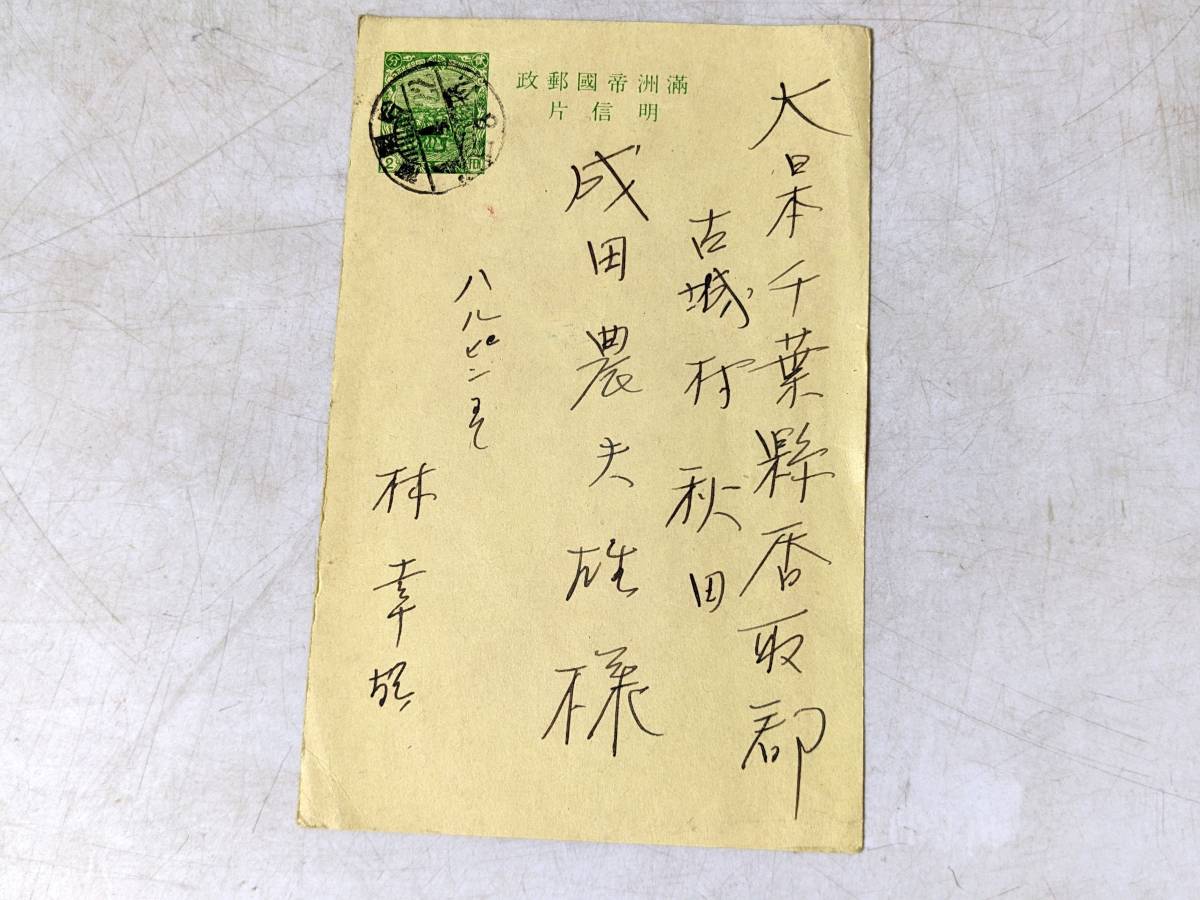 滿洲帝國郵政
明信片
大日本千葉縣香取郡
古城村秋田
成田農夫雄様
ハルピンにて
林幸